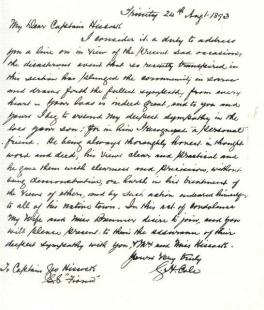 Trinity 24th Augt 1893
My Dear Captain Hiscock
I consider it a duty to address
you a line on in view of the present sad occasion,
the disastrous event that so recently transpired in
this section has plunged the community in sorrow
and draws forth the fullest sympathy, from every
heart. Your loss is indeed great, and to you and
yours I beg to extend my deepest sympathy in the
loss your son: for in him I recognize a personal
friend. He being always thoroughly honest in thought
word and deed, his views clear and practical and
he gave them with clearness and precision, without
being demonstrative, or harsh in his treatment of
the views of others, and by such action endeared himself
to all of his native town. In this act of condolence
My Wife and Miss Brunner desire to join, and you
will please present to them the assurance of their
deepest sympathy with you, Mrs and Miss Hiscock.
Yours very truly
G H Cole
To Captain Geo Hiscock